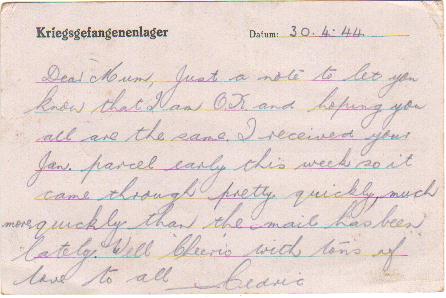 Kriegsgefangenenlager Datum: 30.4.44.
Dear Mum, Just a note to let you
know that I am O.K and hoping you
all are the same. I received your
Jan. parcel early this week so it
came through pretty quickly, much
more quickly than the mail has been
lately. Well Cheerio with tons of
love to all Cedric